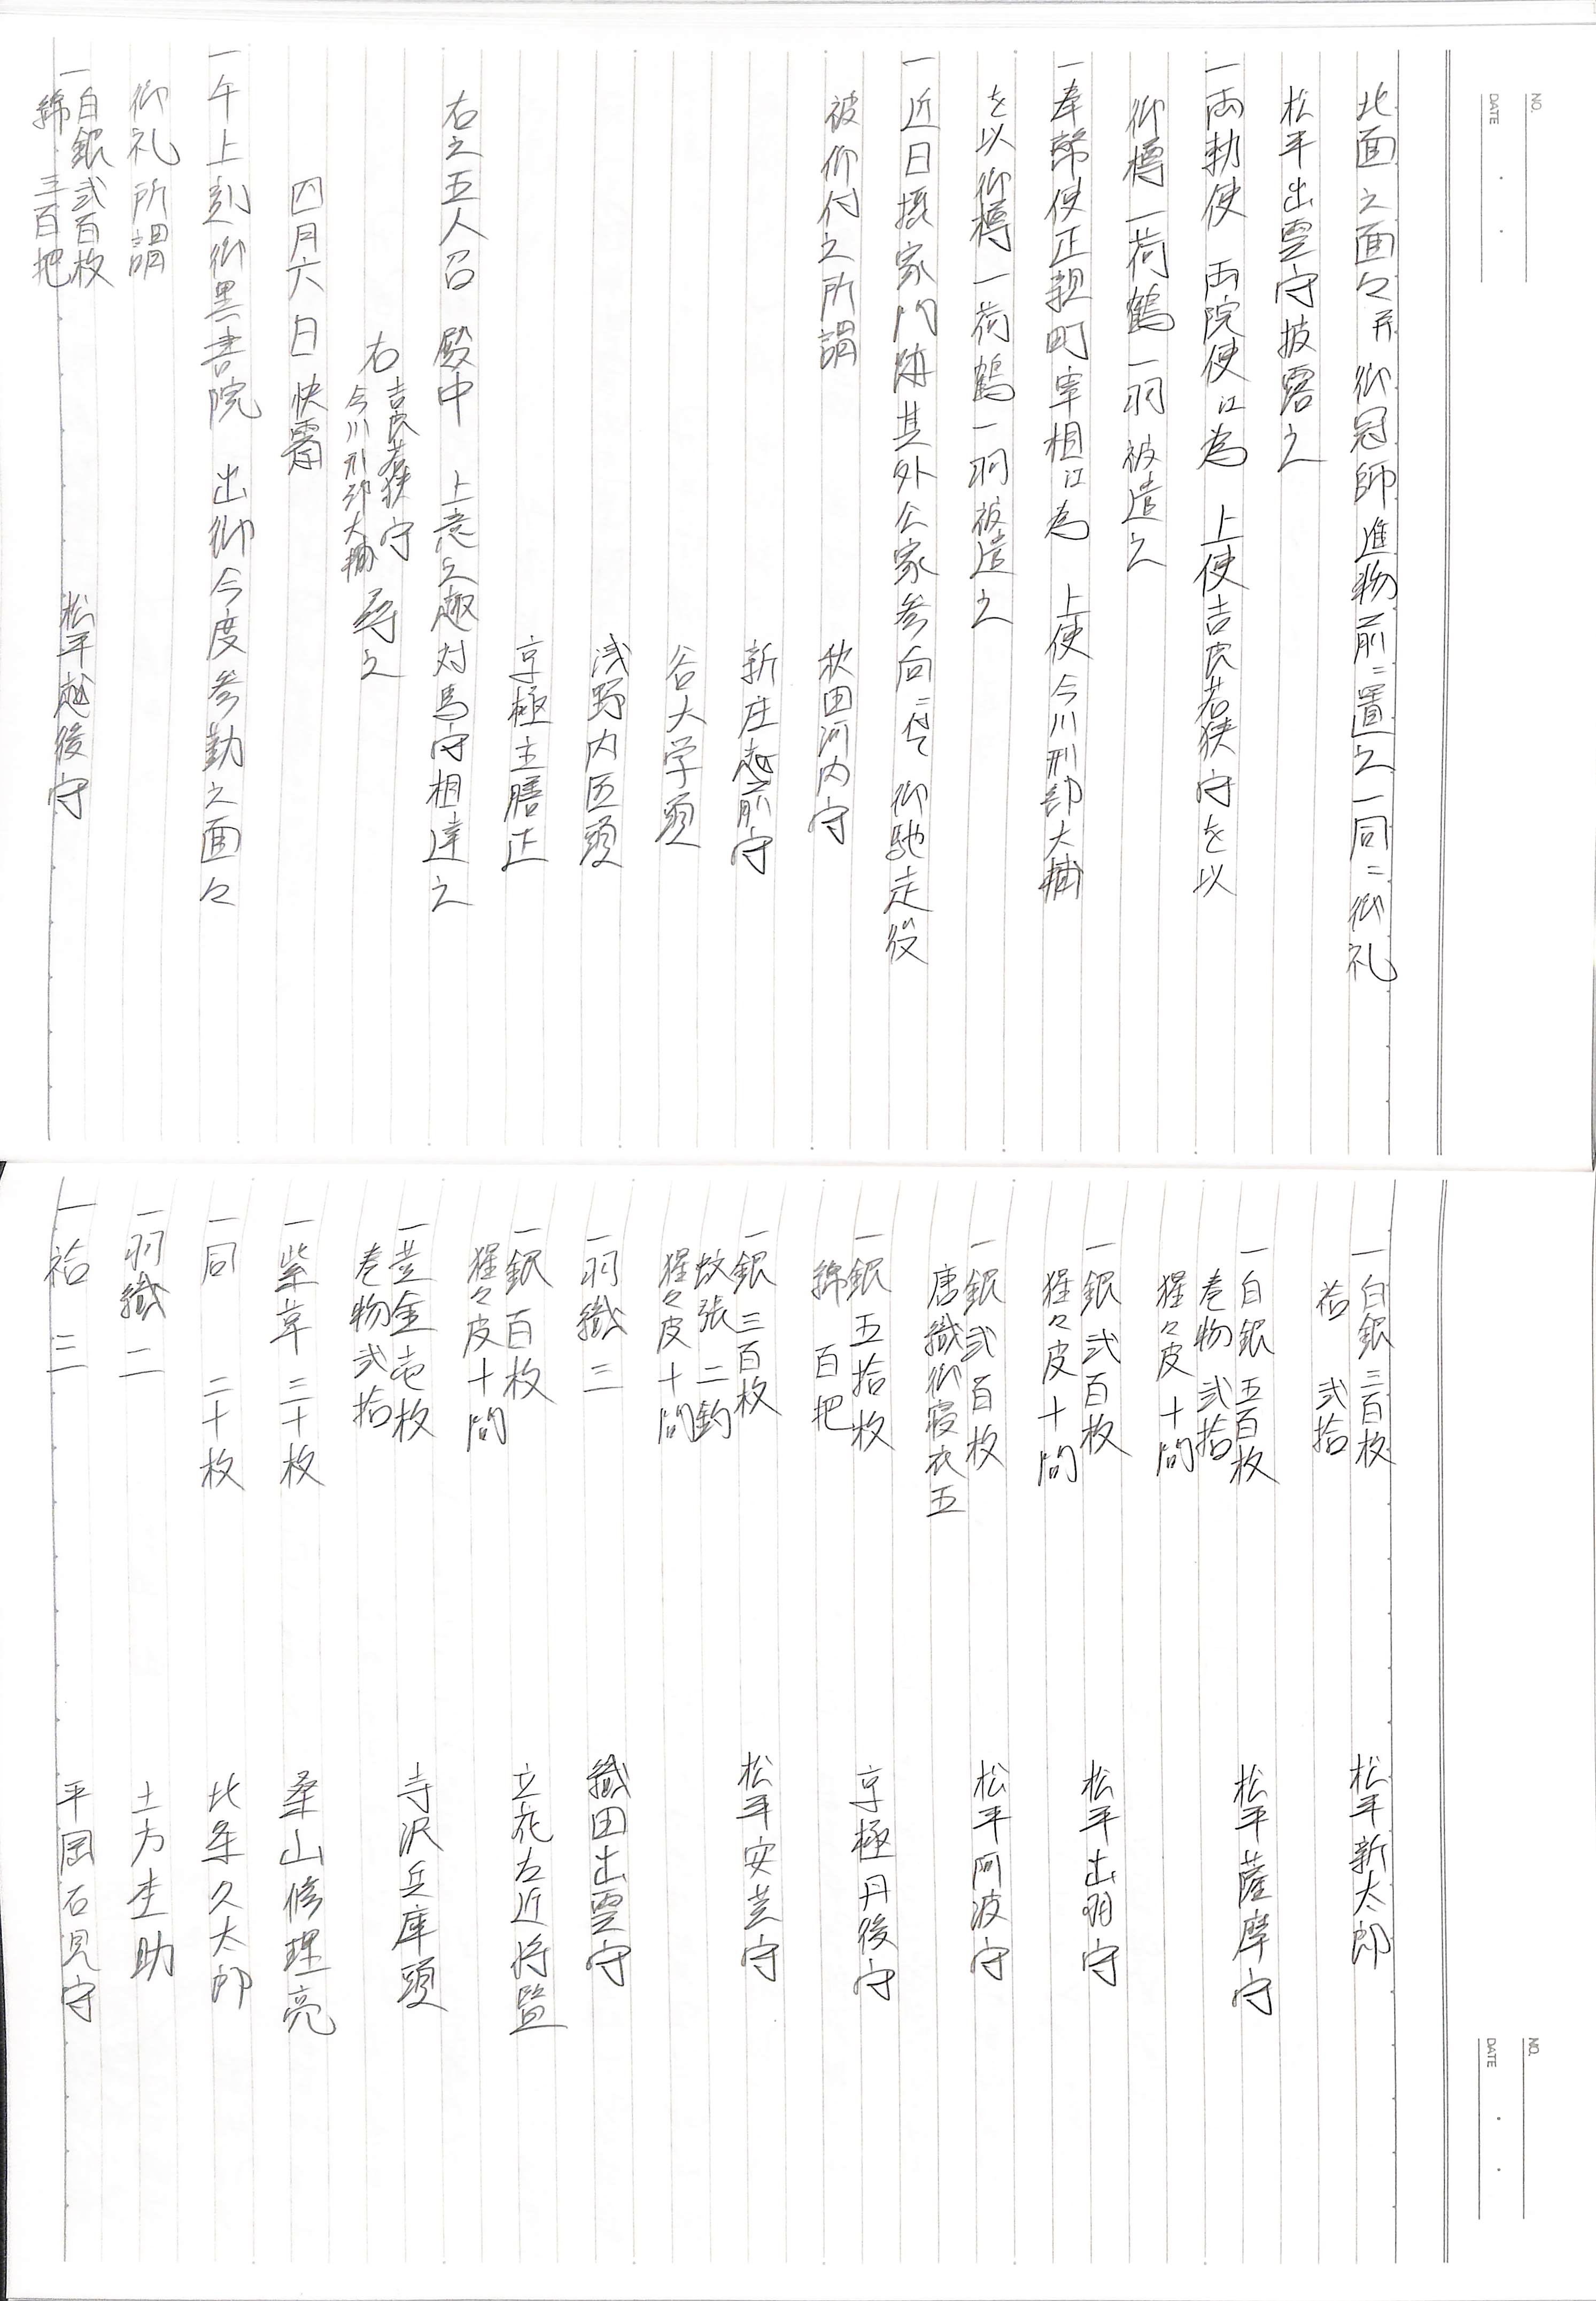 NO.
DATE
北面之面々并御冠師進物前ニ置之一同ニ御礼
松平出雲守披露之
一両勅使 両院使江為 上使吉良若狭守を以
御樽一荷鶴一羽被遣之
一奉幣使正親町宰相江為 上使今川刑部大輔
を以御樽一荷鶴一羽被遣之
一近日摂家門跡其外公家参向ニ付て御馳走役
被仰付之所謂
秋田河内守
新庄越前守
谷大学頭
浅野内匠頭
京極主膳正
右之五人召 殿中 上意之趣対馬守相達之
右 吉良若狭守
今川刑部大輔 尋之
四月六日 快霽
一午上刻御黒書院 出御今度参勤之面々
御礼所謂
一白銀弐百枚 松平越後守
綿 三百把
NO.
DATE
一白銀三百枚 松平新太郎
袷 弐拾
一白銀五百枚 松平薩摩守
巻物弐拾
猩々皮十間
一銀弐百枚 松平出羽守
猩々皮十間
一銀弐百枚 松平阿波守
唐織御寝衣五
一銀五拾枚 京極丹後守
綿 百把
一銀三百枚 松平安芸守
蚊張二釣
猩々皮十間
一羽織三 織田出雲守
一銀百枚 立花左近将監
猩々皮十間
一黄金壱枚 寺沢兵庫頭
巻物弐拾
一紫革 三十枚 桑山修理亮
一同 二十枚 北条久太郎
一羽織 二 土方杢助
一袷 三 平岡石見守